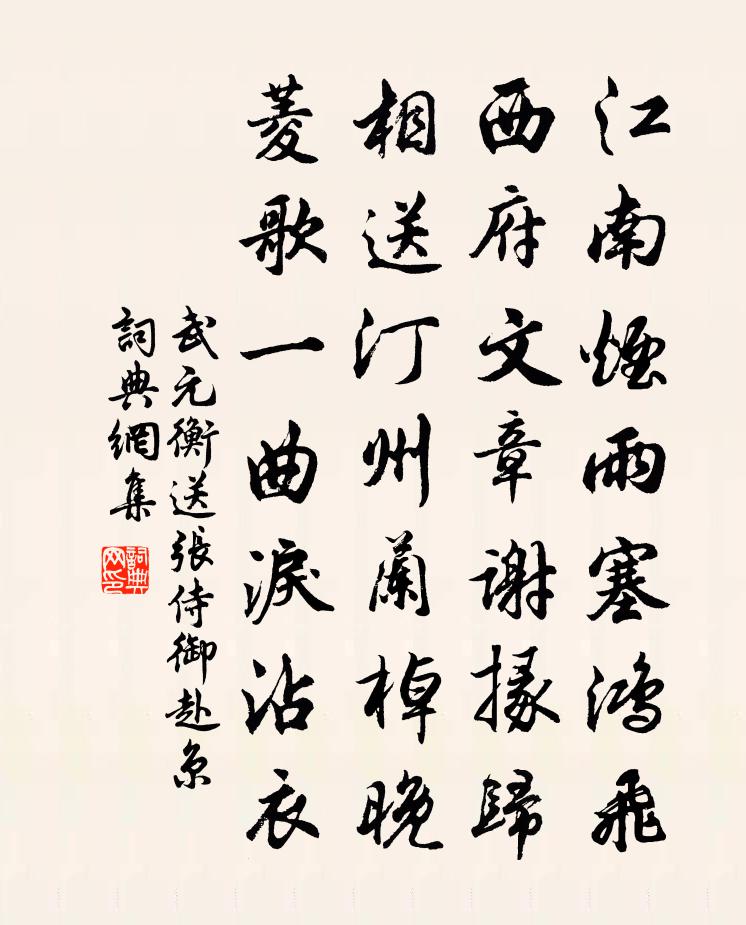 江南煙雨塞鴻飛
西府文章謝掾歸
相送汀州蘭棹晚
菱歌一曲淚沾衣
武元衡送張侍御赴京
詞典網集
詞典網印